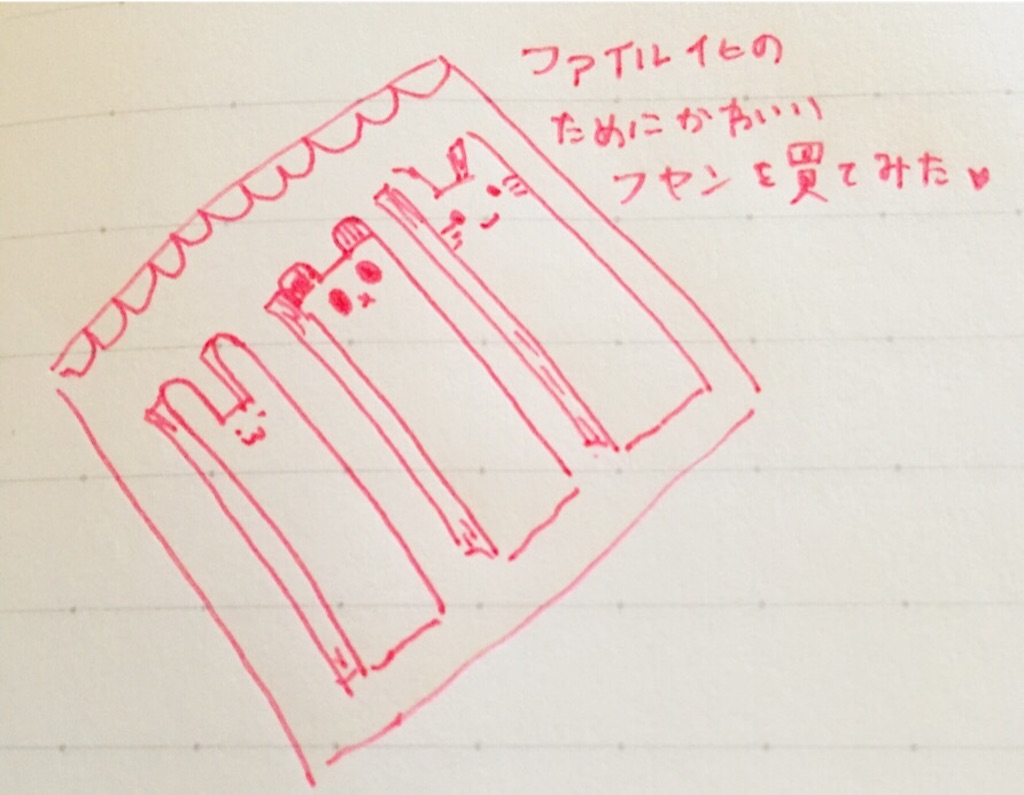 ファイル化の
ためにかわいい
フセンを買てみた♥